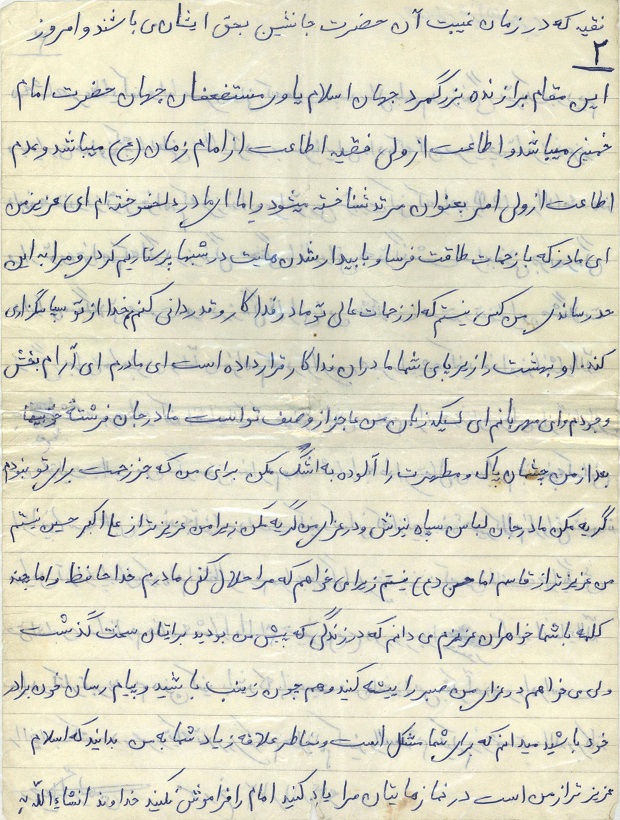 فقیه که در زمان غیبت آن حضرت جانشین بحق ایشان می باشند و امروز
۲
این مقام برازنده بزرگمرد جهان اسلام یاور مستضعفان جهان حضرت امام
خمینی میباشد و اطاعت از ولی فقیه اطاعت از امام زمان (عج) میباشد و عدم
اطاعت از ولی امر بعنوان مرتد شناخته میشود و اما ای مادر دلسوخته ام ای عزیز من
ای مادر که با زحمات طاقت فرسا و با بیدار شدن هایت در شبها پرستاریم کردی و مرا به این
حد رساندی من کسی نیستم که از زحمات عالی تو مادر فداکار و قدردانی کنم خدا از تو سپاسگزاری
کند. او بهشت را زیر پای شما مادران فداکار قرار داده است ای مادرم ای آرام بخش
وجودم و ای مهربانم ای کسیکه زبان من عاجز از وصف تو است مادر جان فرشته خوبیها
بعد از من چشمان پاک و مطهرت را آلوده به اشک مکن برای من که جز زحمت برای تو نبودم
گریه مکن مادر جان لباس سیاه نپوش و در عزای من گریه مکن زیرا من عزیزتر از علی اکبر حسین نیستم
من عزیزتر از قاسم امام حسن (ع) نیستم زیرا می خواهم که مرا حلال کنی مادرم خدا حافظ و اما چند
کلمه با شما خواهران عزیزم می دانم که در زندگی که پیش من بودید برایتان سخت گذشت
ولی می خواهم در عزای من صبر را پیشه کنید و هم چون زینب باشید و پیام رسان خون برادر
خود باشید میدانم که برای شما مشکل است و بخاطر علاقه زیاد شما به من بدانید که اسلام
عزیزتر از من است در نمازهایتان مرا یاد کنید امام را فراموش نکنید خداوند انشاءالله به